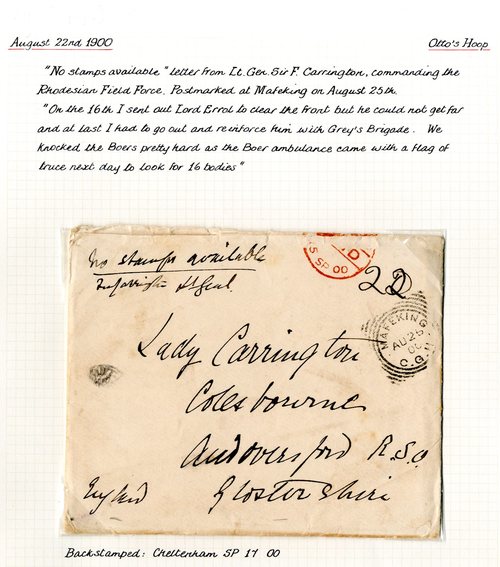 August 22nd 1900 Otto's Hoop
"No stamps available" letter from Lt. Gen. Sir F. Carrington, commanding the
Rhodesian Field Force. Postmarked at Mafeking on August 25th.
"On the 16th I sent out Lord Errol to clear the front but he could not get far
and at last I had to go out and reinforce him with Grey's Brigade. We
knocked the Boers pretty hard as the Boer ambulance came with a flag of
truce next day to look for 16 bodies"
No stamps available
SP 00
D
2D
MAFEKING
AU 25
00
C.G.
Lady Carrington
Colesbourne
Andoversford R.S.O.
England Glostershire
Backstamped: Cheltenham SP 17 00